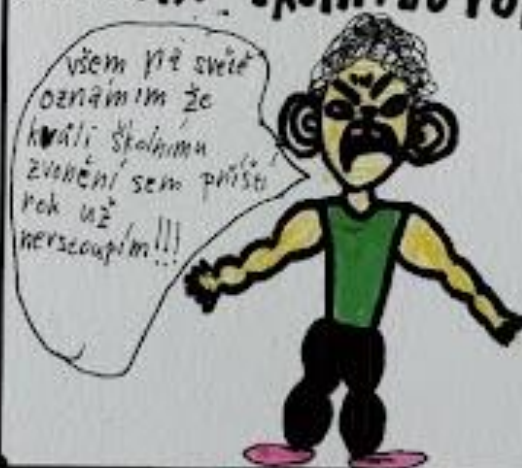 všem na světě
oznámím že
kvůli školnímu
zvonění sem příští
rok už
nevstoupím!!!